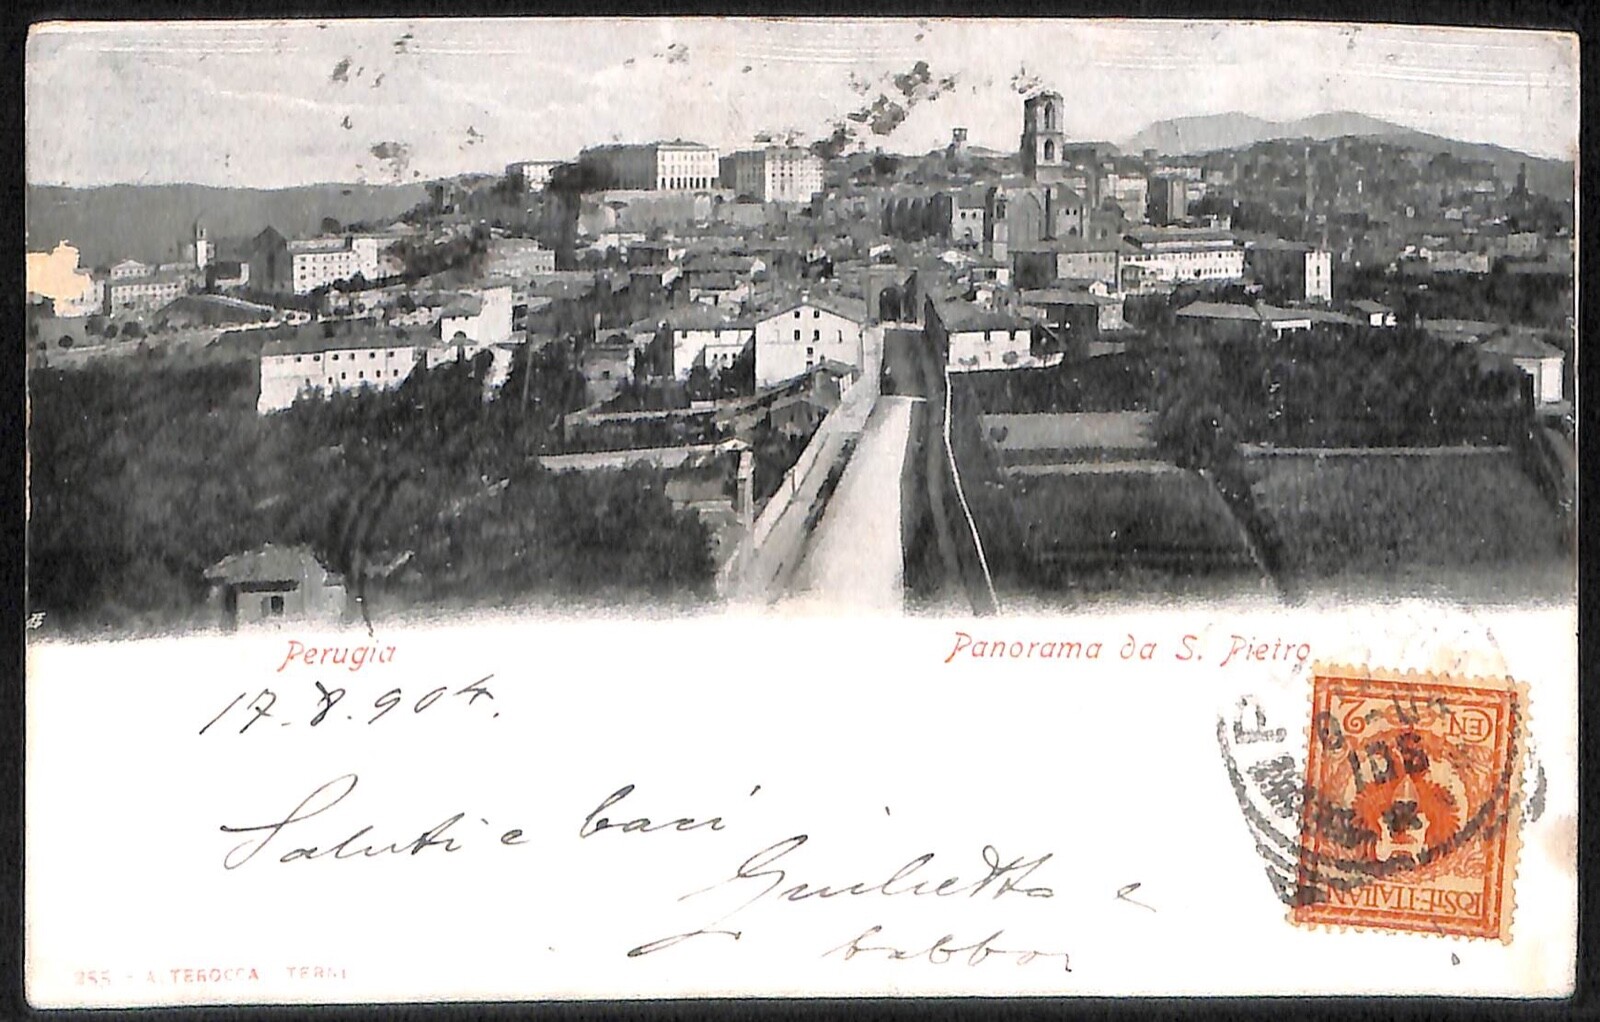 Perugia
Panorama da S. Pietro
17.8.904.
Saluti e baci
Giulietta e
babbo
CEN 2
POSTE·ITALIANE
A. TEROCCA TERNI